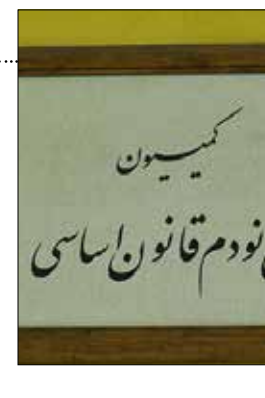 کمیسیون
نودم قانون اساسی